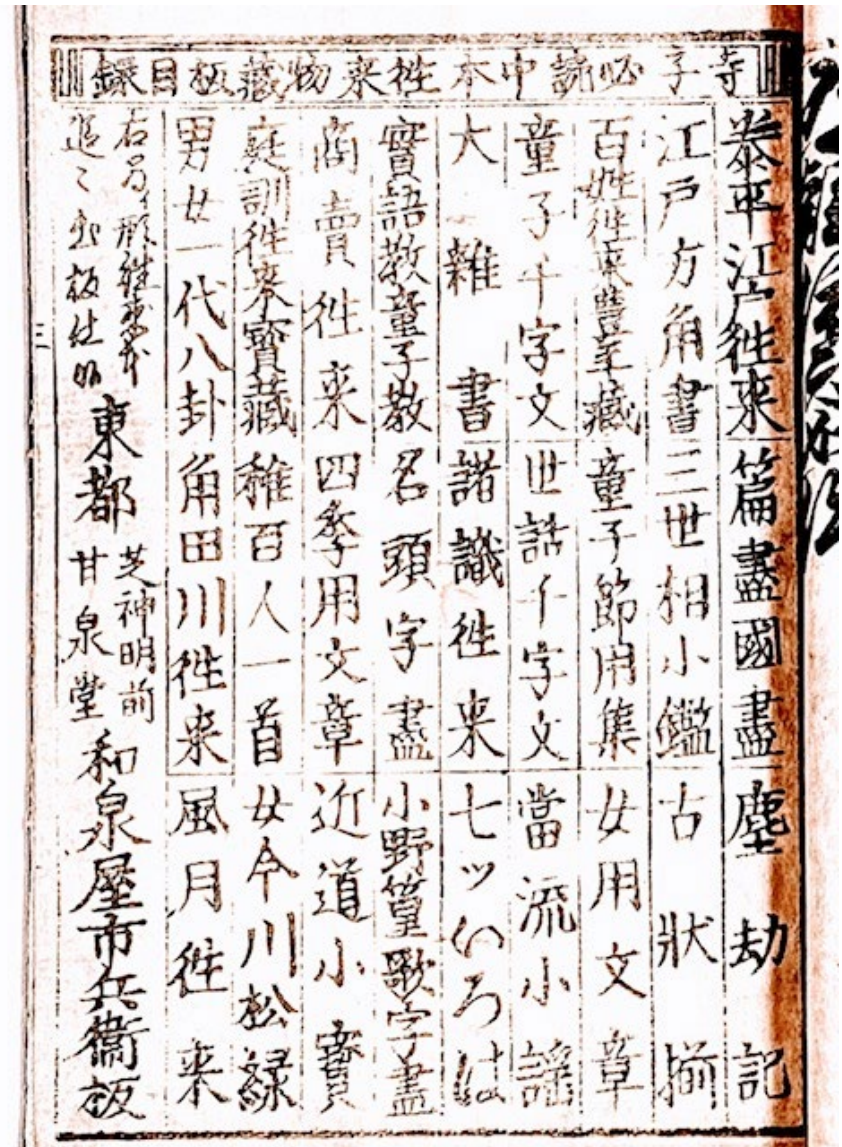 寺子必読中本徃来物藏板目録
泰平江戸徃来
篇盡國盡
塵劫記
江戸方角書
三世相小鑑
古状揃
百姓徃来豊年藏
童子節用集
女用文章
童子千字文
世話千字文
當流小謡
大雜書
諸識徃来
七ツいろは
實語教童子教
名頭字盡
小野篁歌字盡
商賣徃来
四季用文章
近道小寶
庭訓徃来寳藏
稚百人一首
女今川松緑
男女一代八卦
角田川徃来
風月徃来
追〻出板仕候
東都
芝神明前
甘泉堂
和泉屋市兵衞板
三